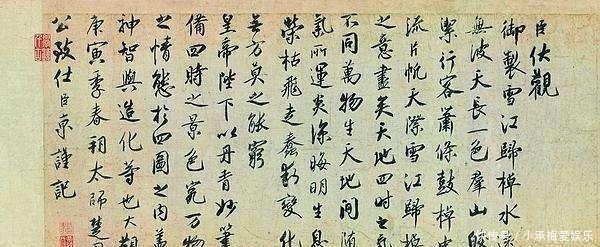 臣伏觀
御製雪江歸棹水
無波天長一色群山皎
潔行客蕭條鼓棹中
流片帆天際雪江歸棹
之意盡矣天地四時之氣
不同萬物生天地間隨
氣所運炎涼晦明生息
榮枯飛走蠢動變化
無方莫之能窮
皇帝陛下以丹青妙筆
備四時之景色究萬物
之情態於四圖之內蓋
神智與造化等也大觀
庚寅季春朔太師楚
公致仕臣京謹記